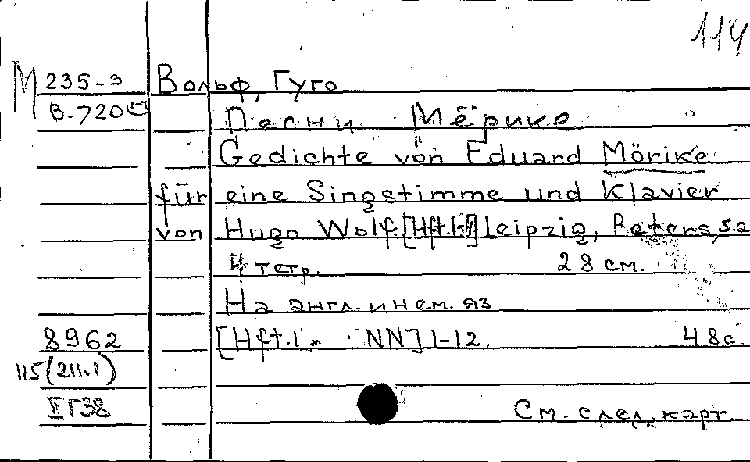 114
М 235-3 Вольф, Гуго
В-720 Песни Мёрике
Gedichte von Eduard Mörike
für eine Singstimme und Klavier
von Hugo Wolf. Leipzig, Peters, s.a
4 тетр. 28 см.
На англ. и нем. яз
8962 [Hft.1. NN] 1-12. 48с.
115(211.1)
См. след. карт.